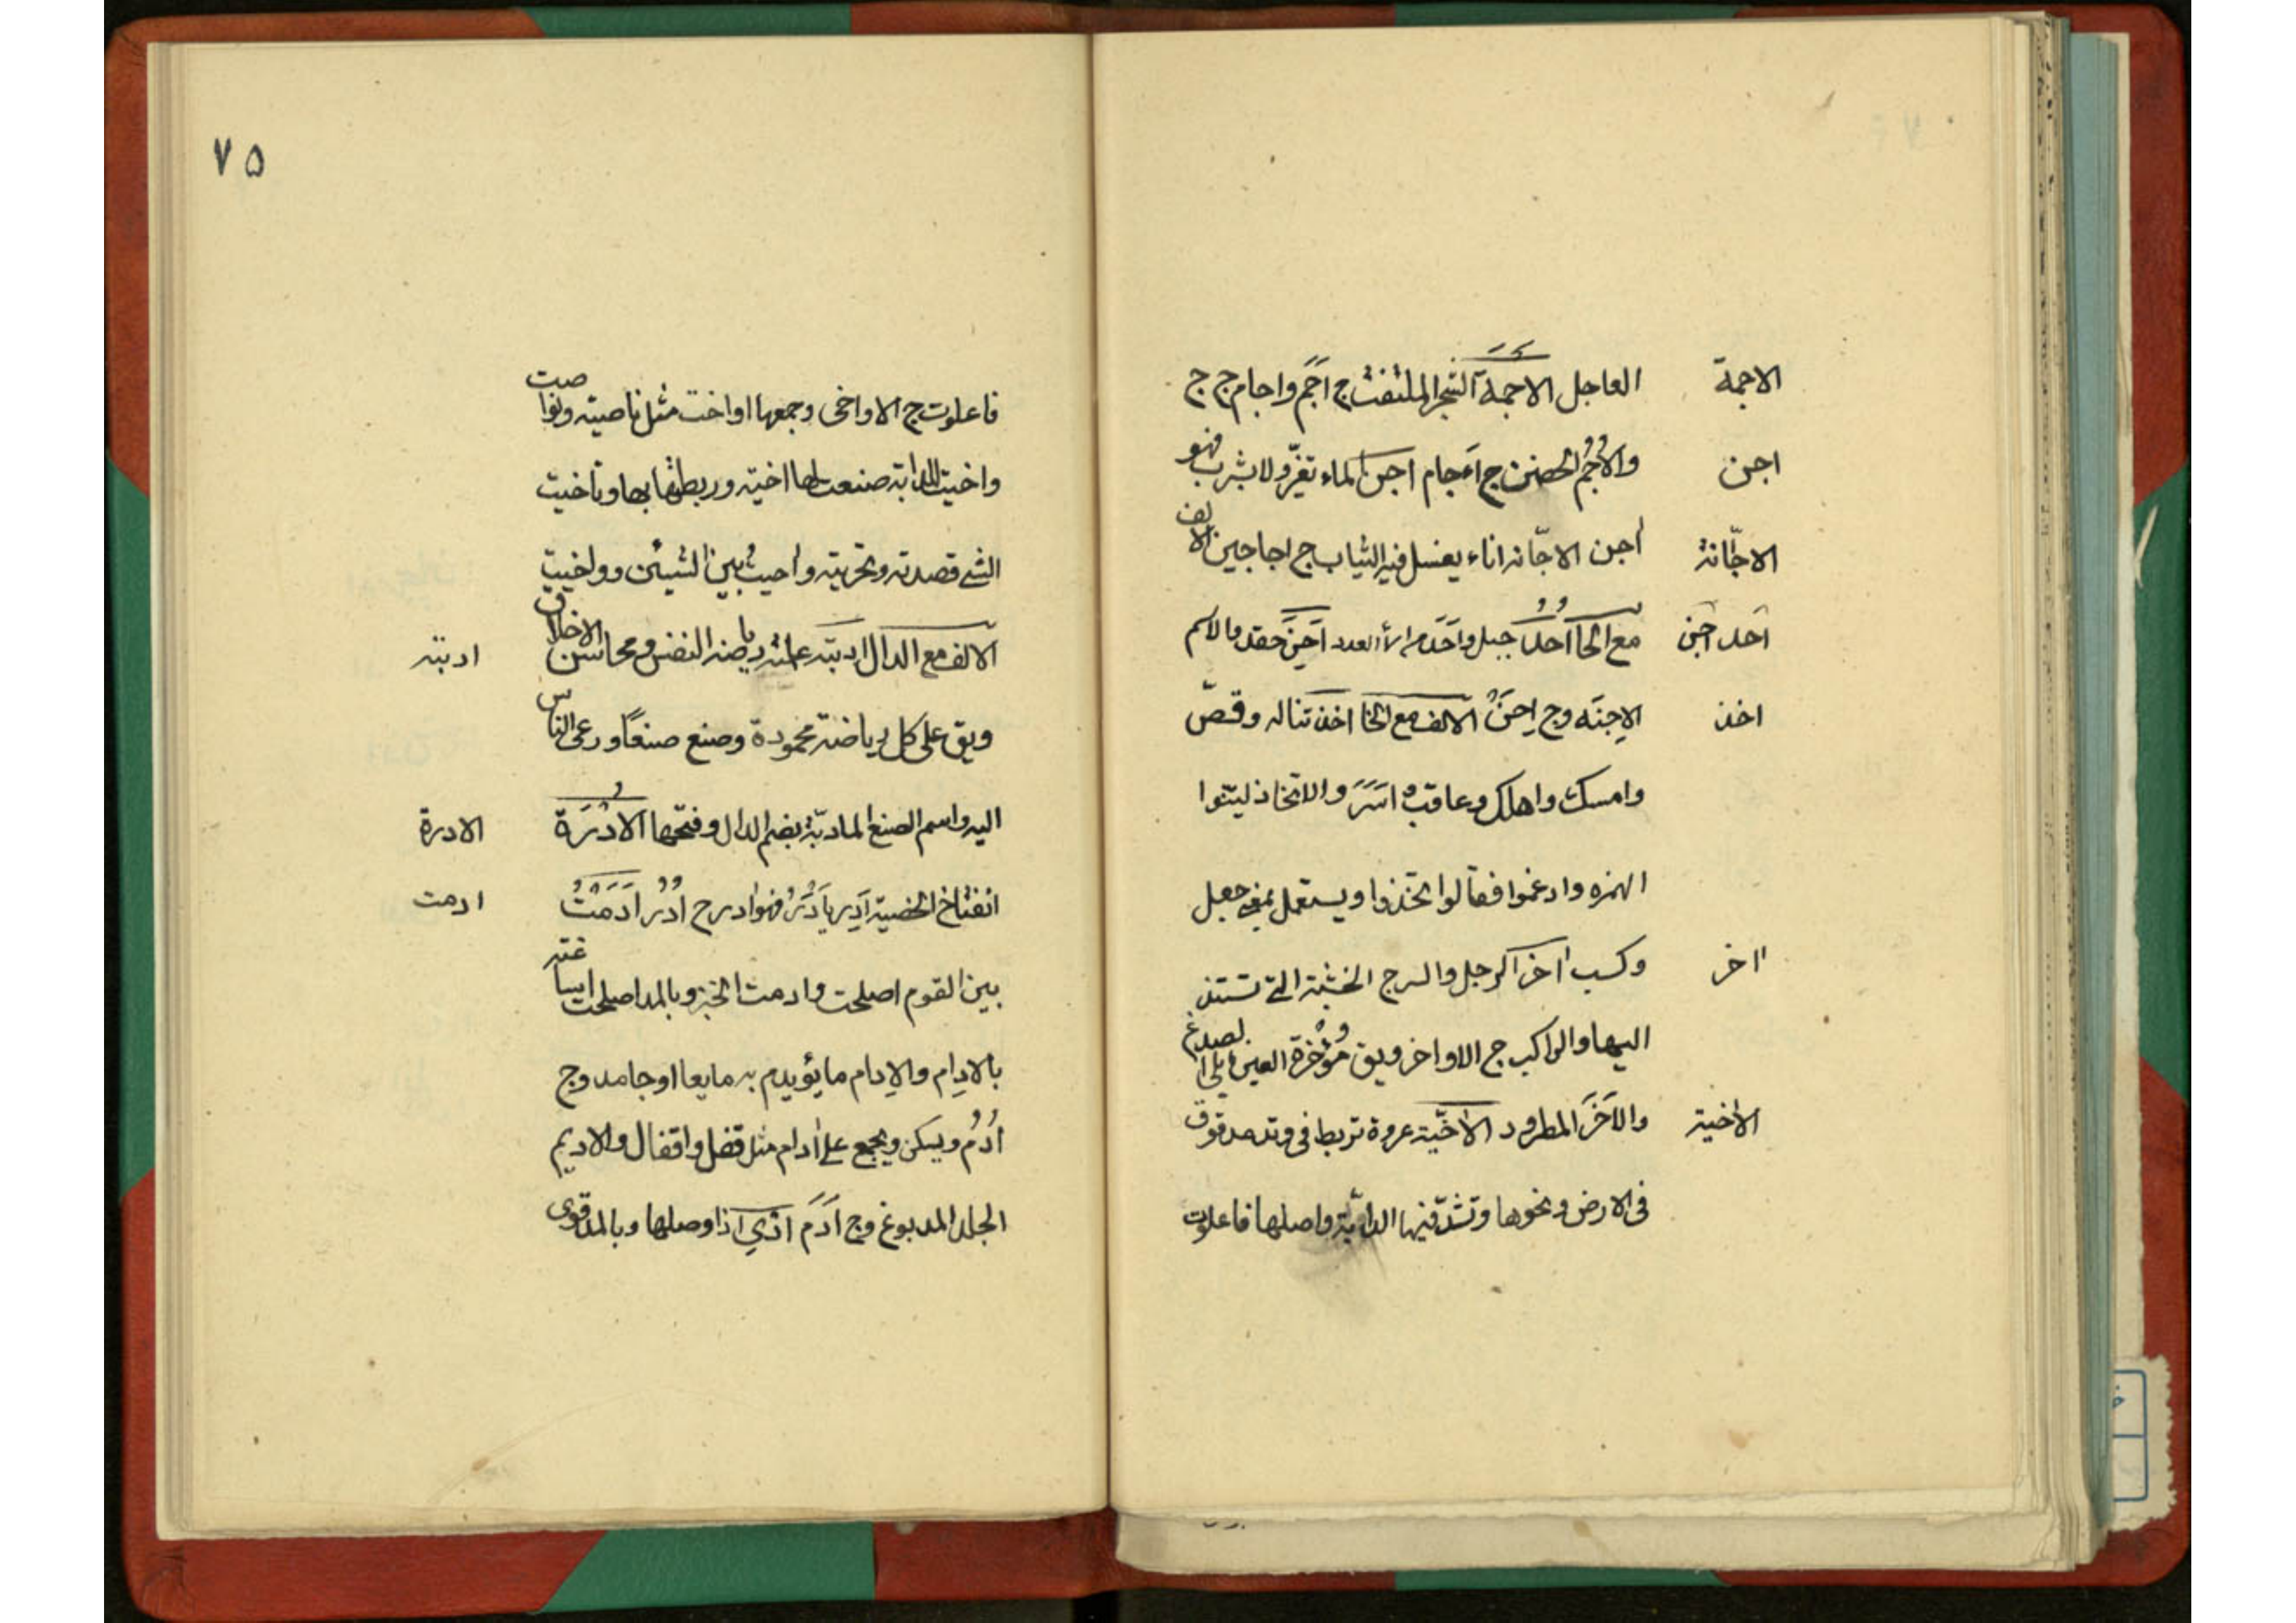 الاجمة
العاجل الاجمة الشجر الملتف ج اَجَم واجام ج ج
اجن
والاُجُم الحصن ج اءجام اجن الماء تغيّر ولا يشرب فهو
الاجّانة
اجن الاجّانه اناء يغسل فيه الثياب ج اجاجين الالف
احد احن
مع الحا اُحُد جبل واَحَد العدد اَحِنَ حقد والاسم
اخذ
الاِحنَه وج اِحَنٌ الالف مع الخا اخذ تناله وقصّ
وامسك واهلك وعاقب واسَرَ والاتخاذ ليّنوا
الهمزه وادغموا فقالوا اتخذوا ويستعمل بمعنى جعل
ااخر
وكسب ااخر الرجل والسرج الخشبة التى تستند
اليها والراكب ج الاواخر ويق مُؤْخرة العين مايلى الصدغ
الاخية
والاَخَر المطرود الاخيّة عروة تربط فى وتد مدقوق
فى الارض ونحوها وتشدّ فيها الدابّة واصلها فاعلوت
٧۵
فاعلوت ج الاواخى وجمعها اواخت مثل ناصيته ونواصت
واخيت للدابة صنعت لها اخيّه وربطتها بها وتاخيت
الشى قصدته وتحريته واخيتُ بين الشيئين وواخيت
الالف مع الدال ادبته علمته رياضه النفس ومحاسن الاخلاق
ادبته
ويق على كل رياضة محمودة وصنع صنعًا ودعى الناس
اليه واسم الصنع المادبة بضم الدال وفتحها الاُدْرَة
الادرة
انفتاخ الخصية اَدِر يَأدَرُ فهو ادر ج اُدُر اَدَمْتُ
ادمت
بين القوم اصلحت وادمت الخبز وبالمد اصلحت اساغته
بالادِام والاِدام ما يؤيدم به مايعا او جامد وج
اُدُم ويسكن ويجمع على اٰدام مثل قفل واقفال والاديم
الجلد المدبوغ وج اَدَم اَذِىَ اذا وصلها وبالمد قوى